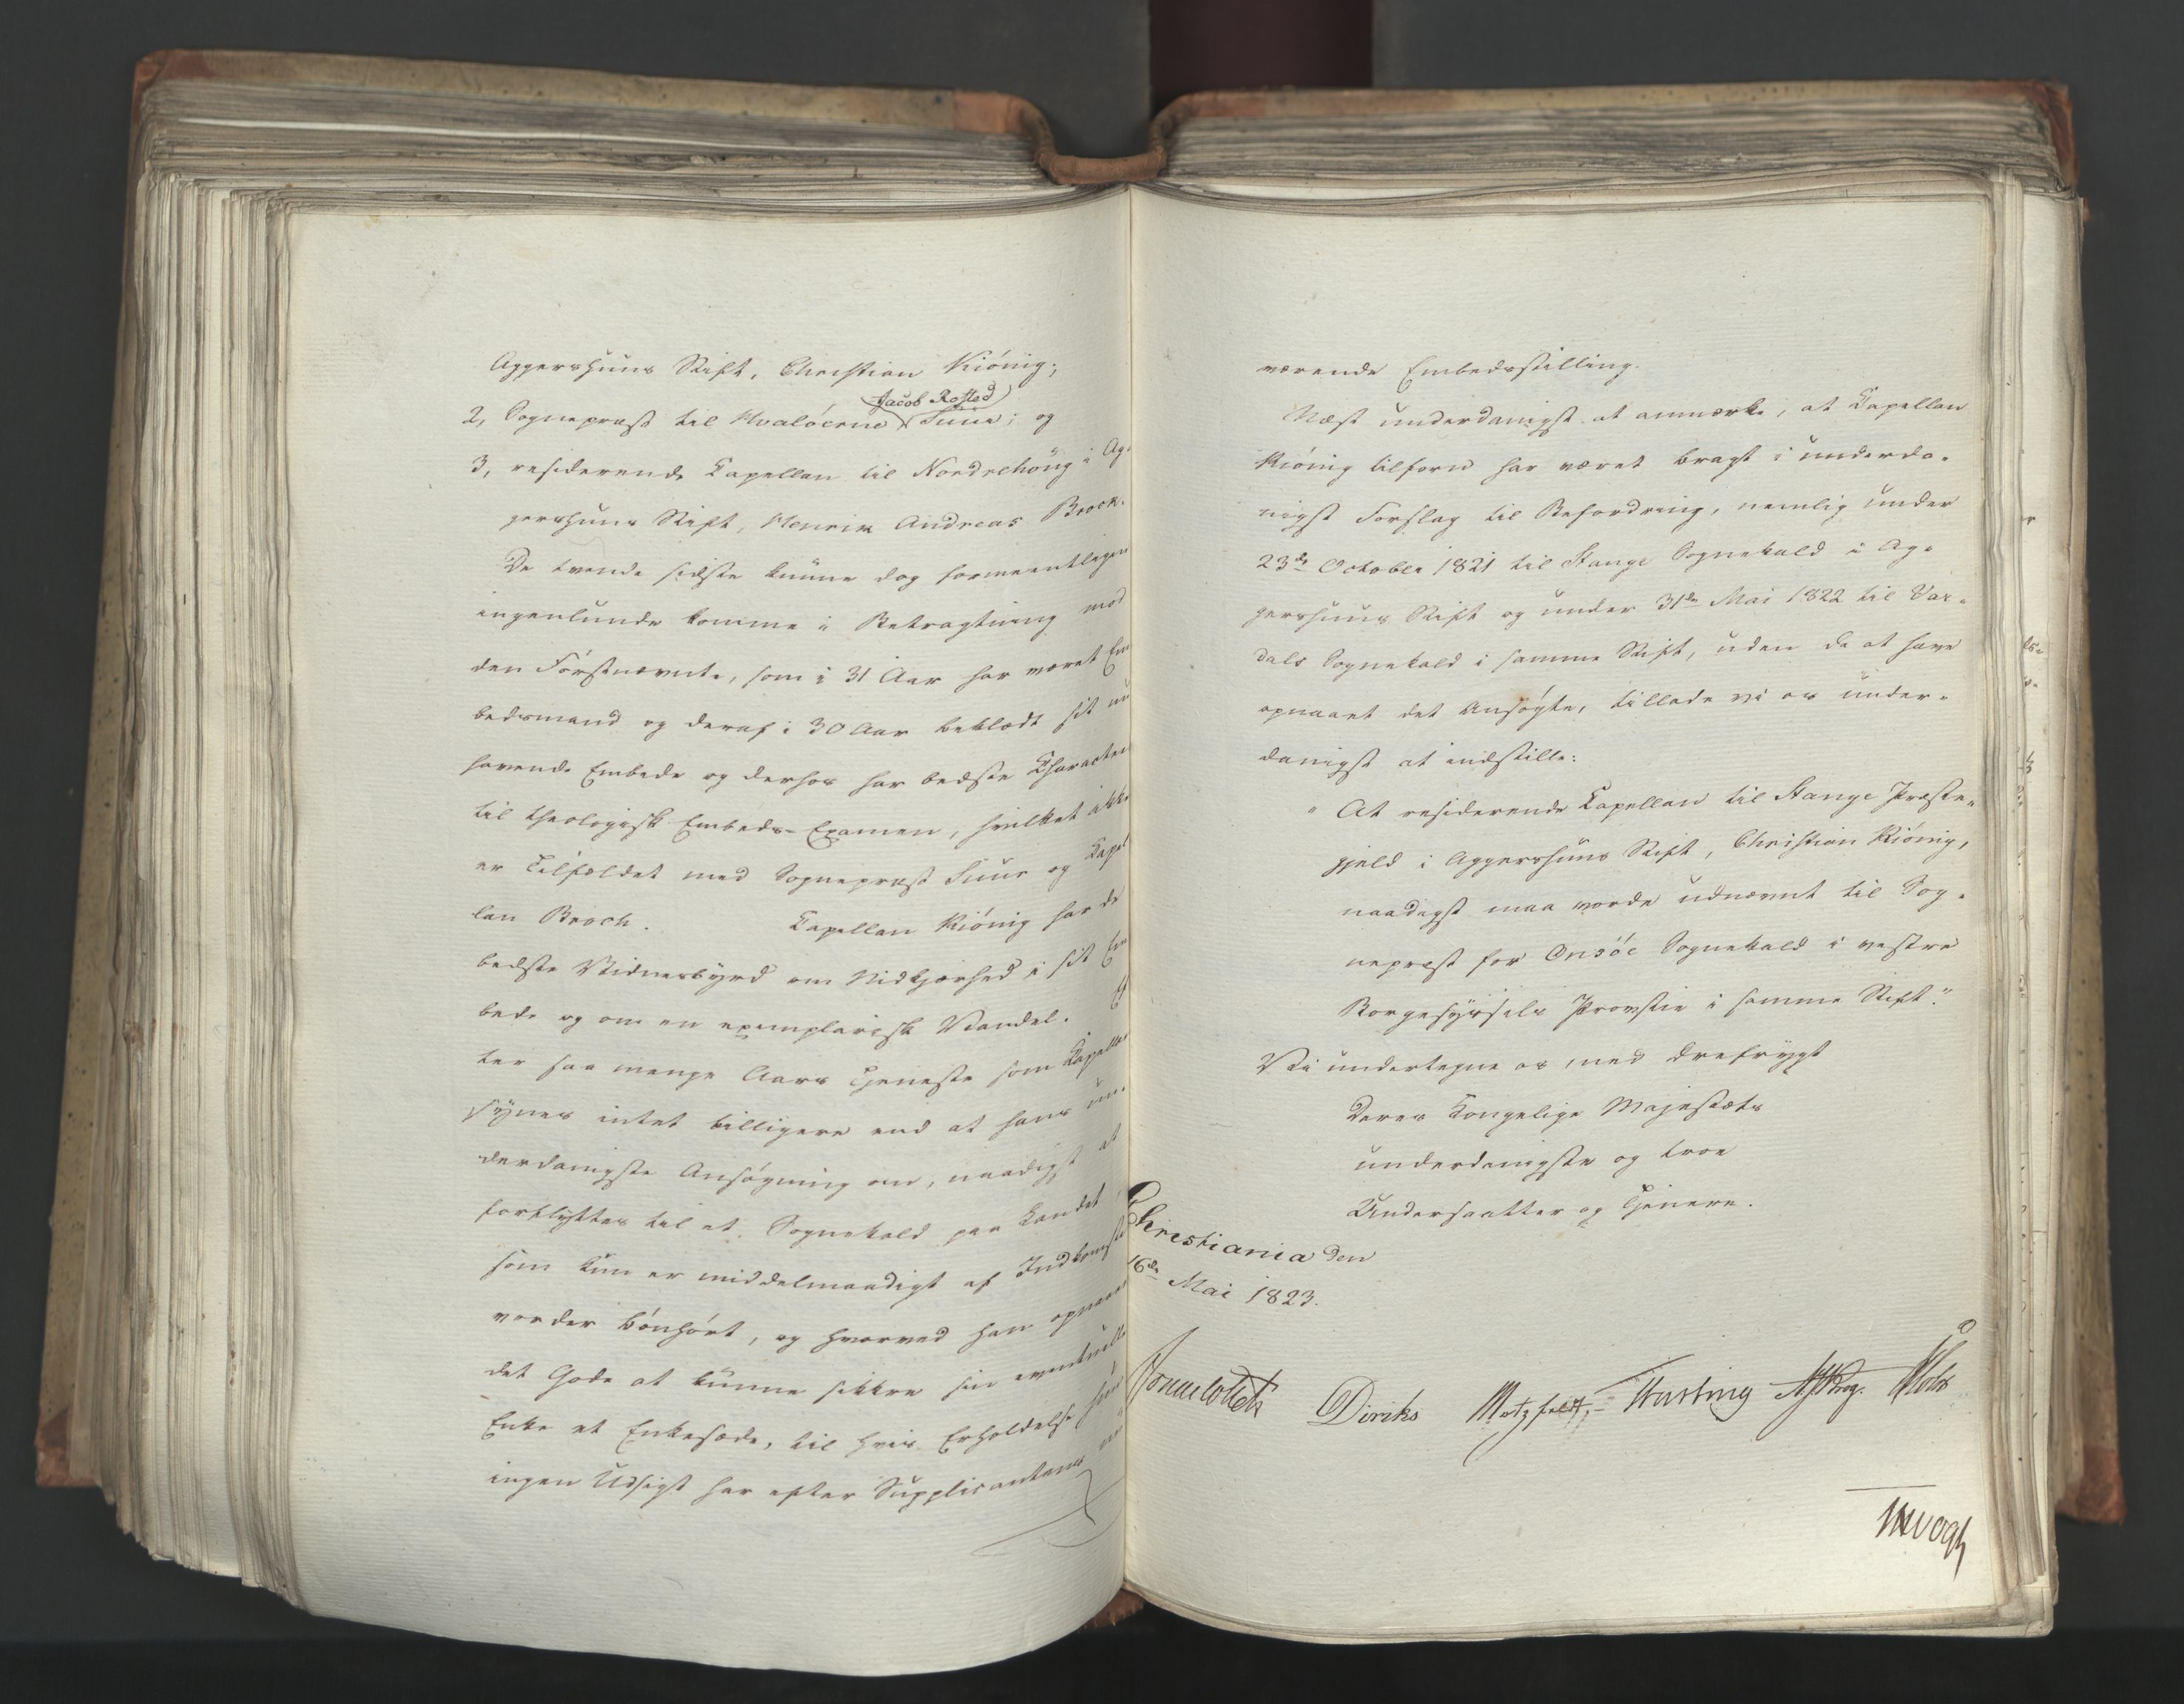 Aggershuus Stift, Christian Kiönig;
Jacob Rosted
2, Sognepræst til Hvalöerne Suur; og
3, residerende Capellan til Nordrehoug i Ag-
gershuus Stift, Henrik Andreas Broch.
De tvende sidste kunne dog formeentligen
ingenlunde komme i Betragtning mod
den Förstnævnte, som i 31 Aar har været Em
bedsmand og deraf i 30 Aar beklædt sit nu
havende Embede og derhos har bedste Character
til theologisk Embeds-Examen, hvilket ikke
er Tilfældet med Sognepræst Suur og Capel
lan Broch. Capellan Kiönig har de
bedste Vidnesbyrd om Nidkjærhed i sit Em
bede og om en exemplarisk Vandel. Ef
ter saa mange Aars Tjeneste som Capellan
synes intet billigere end at hans un-
derdanigste Ansögning om, naadigst at
forflyttes til et Sognekald paa Landet
som kun er middelmaadigt af Indkomster
vorder bönhört, og hvorved han opnaaer
det Gode at kunne sikkre sin eventuelle
Enke et Enkesæde, til hvis Erholdelse hun
ingen Udsigt har efter Supplicantens nu
værende Embedsstilling.
Næst underdanigst at anmærke, at Capellan
Kiönig tilforn har været bragt i underda-
nigst Forslag til Befordring, nemlig under
23de October 1821 til Stange Sognekald i Ag-
gershuus Stift og under 31de Mai 1822 til Var-
dals Sognekald i samme Stift, uden da at have
opnaaet det Ansögte, tillade vi os under-
danigst at indstille:
"At residerende Capellan til Stange Præste-
gjeld i Aggershuus Stift, Christian Kiönig,
naadigst maa vorde udnævnt til Sog-
nepræst for Onsöe Sognekald i vestre
Borgesyssels Provstie i samme Stift."
Vi undertegne os med Ærefrygt
Deres Kongelige Majestæts
underdanigste og troe
Undersaatter og Tjenere.
Christiania den
16de Mai 1823.
Diriks Motzfeldt, Fasting Krog. Holst
Vogt